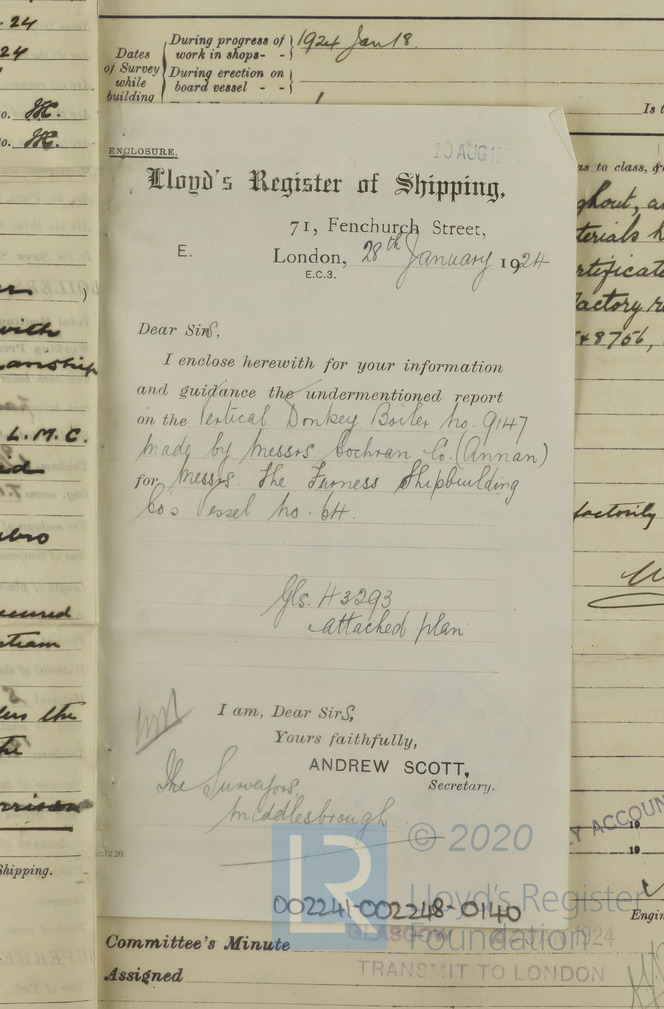 . 24
24
o. JK.
o. JK.
)
with
L. M. C.
steam
the
Shipping.
Dates
of Survey
while
building
During progress of
work in shops- -
1924 Jan 18.
During erection on
board vessel - -
Is t
as to class, &
ghout, a
terials h
rtificat
factory r
48756,
factorily
Y ACCOUN
19
19
Engin
ENCLOSURE.
AUG
Lloyd's Register of Shipping,
71, Fenchurch Street,
E.
London, 28th January 1924
E.C.3.
Dear Sirs,
I enclose herewith for your information
and guidance the undermentioned report
on the Vertical Donkey Boiler no. 9147
made by Messrs. Cochran Co. (Annan)
for Messrs. The Furness Shipbuilding
Co's Vessel no. 64.
Gls. 43293
attached plan
I am, Dear Sirs,
Yours faithfully,
ANDREW SCOTT,
Secretary.
The Surveyors,
Middlesbrough
.12.20.
LR
© 2020
Lloyd's Register
Foundation
002241-002248-0140
Committee's Minute
GLASGOW 1924
Assigned
TRANSMIT TO LONDON